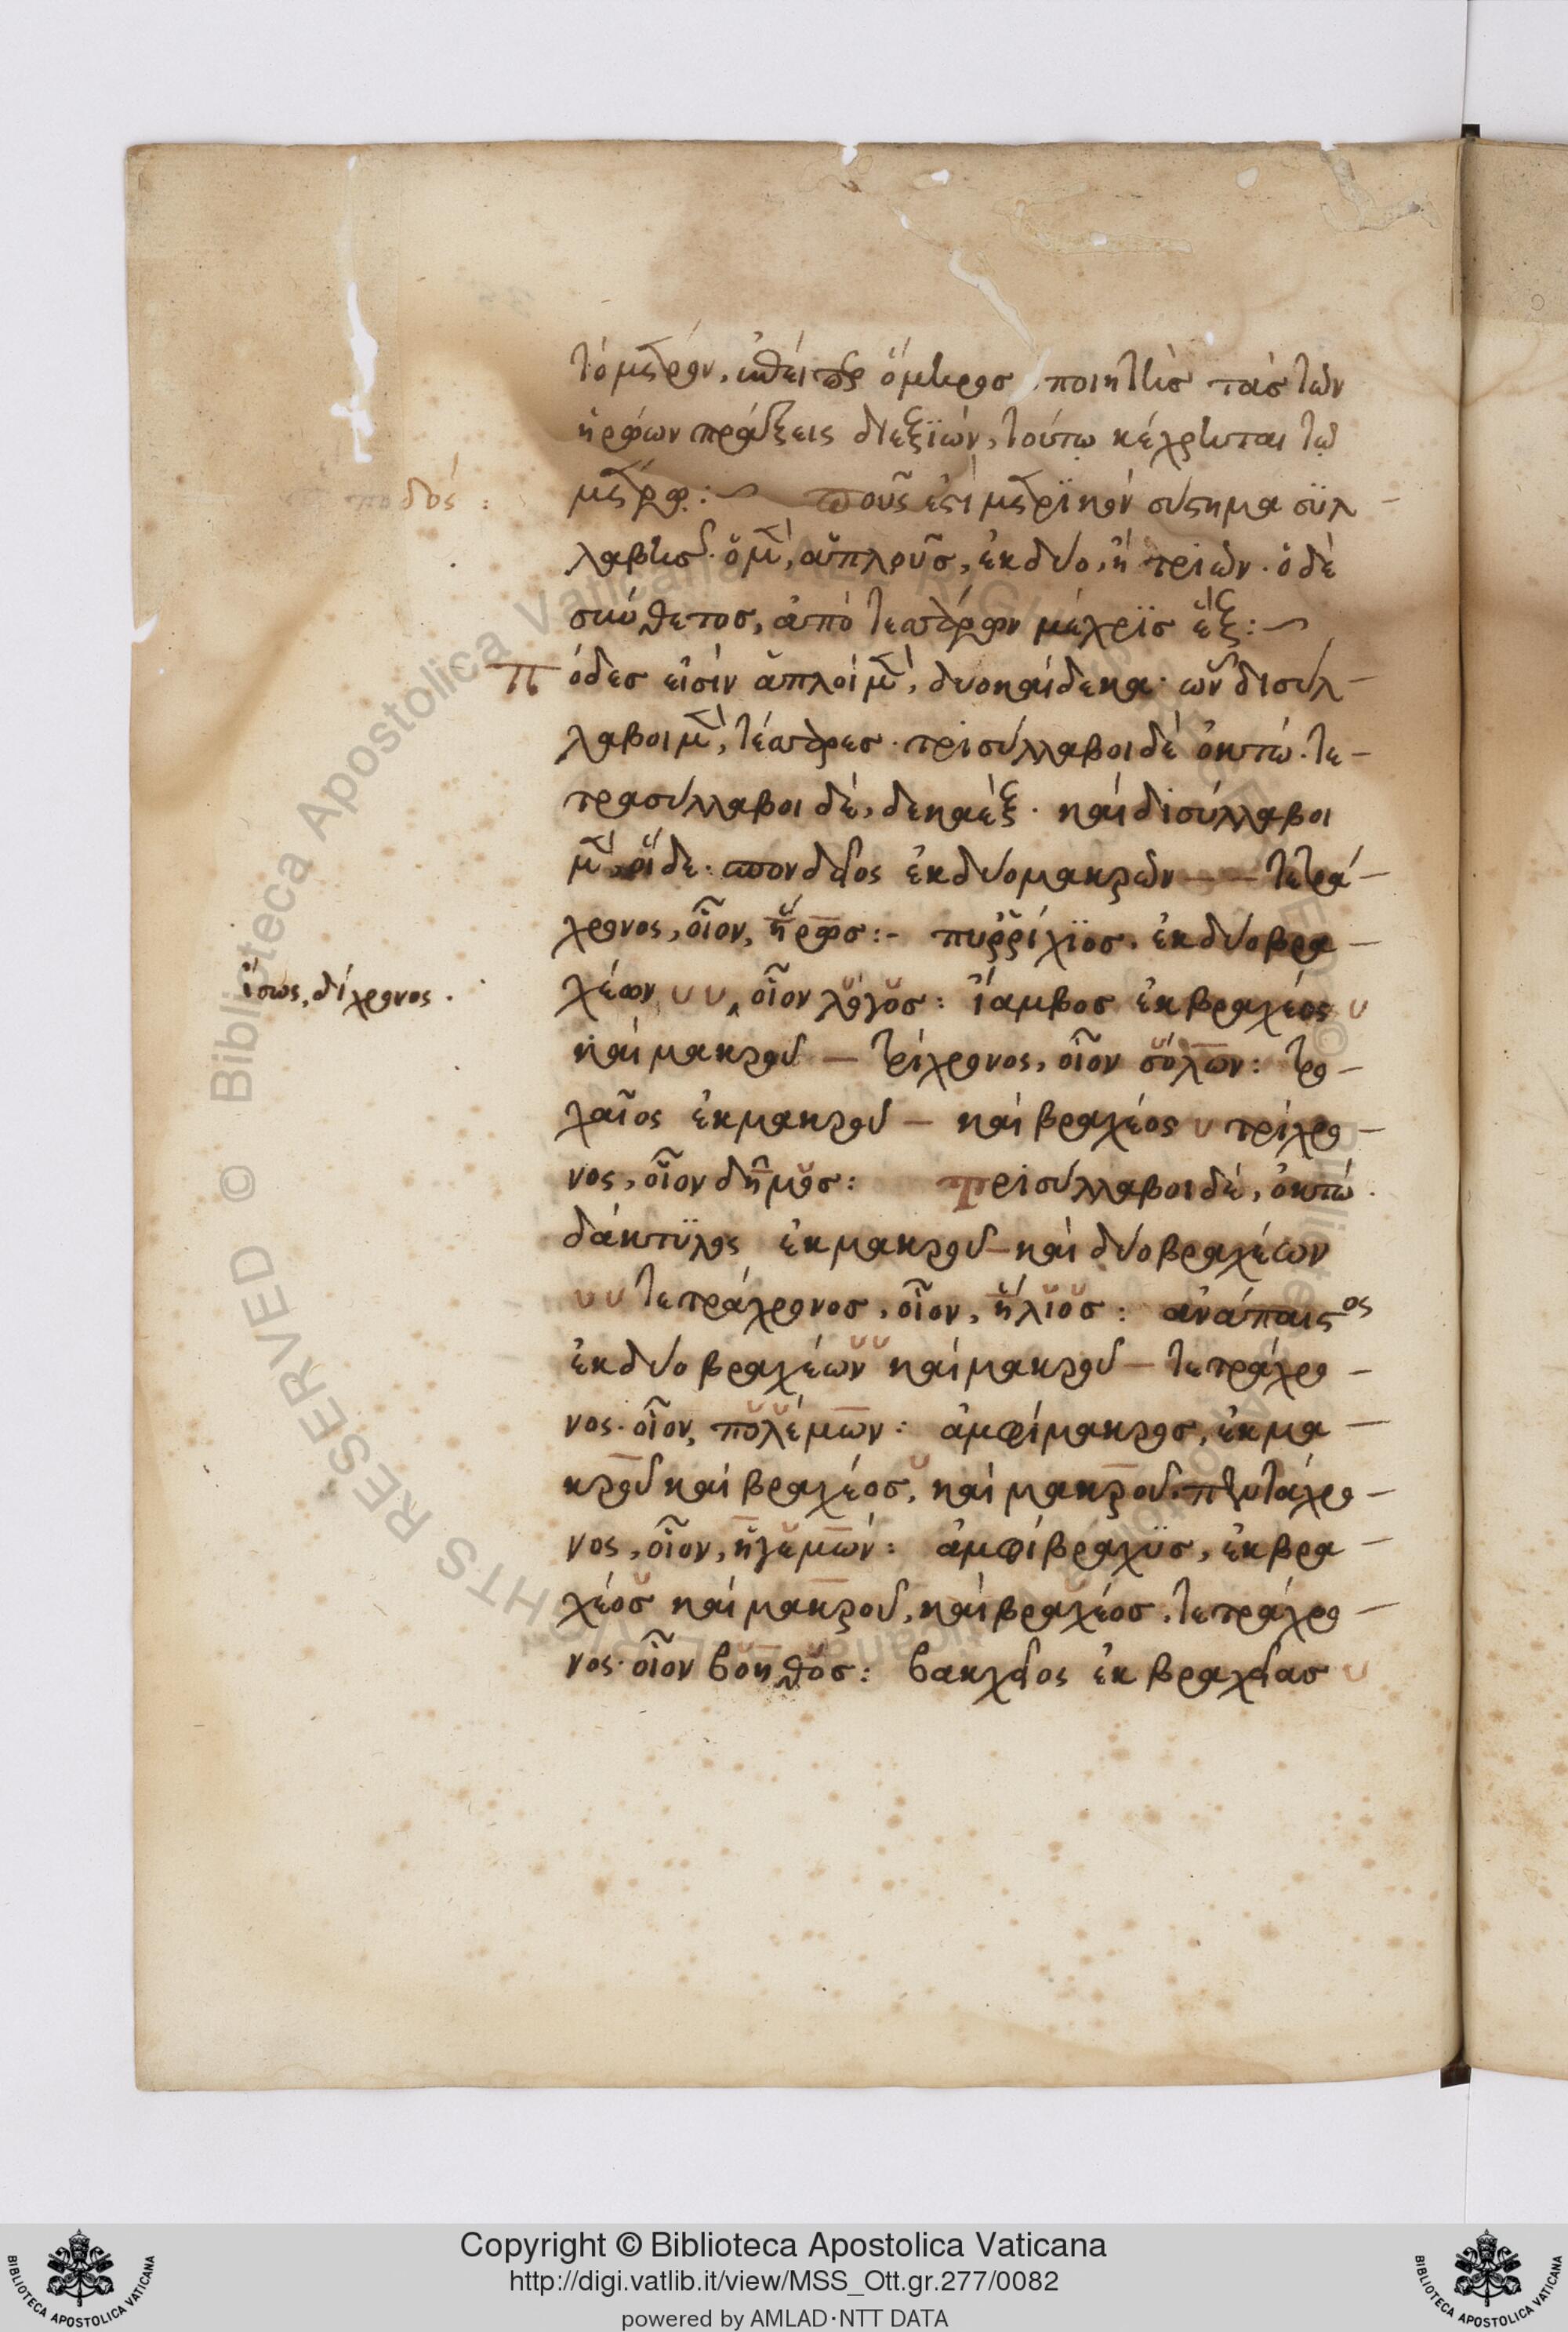 τὸ μέτρον, ἐπείπερ ὅμηρος ποιητὴς τὰς τῶν
ἡρώων πράξεις διεξϊὼν, τούτω κέχρηται τῶ
μέτρω:
ποδός:
ποῦς ἐστὶ μετρϊκὸν σύστημα σϋλ-
λαβῆς. ὁ μὲν, ἁπλοῦς, ἐκ δύο, ἢ τριῶν. ὁ δὲ
σύνθετος, ἀπὸ τεσσάρων μέχρϊς ἕξ:
Πόδες εἰσὶν ἁπλοῖ μὲν, δυοκαίδεκα· ὧν δισύλ-
λαβοι μὲν, τέσσαρες. τρισύλλαβοι δὲ ὀκτώ. τε-
τρασύλλαβοι δὲ, δεκαέξ. καὶ δισύλλαβοι
μὲν οἵδε· σπονδεῖος ἐκ δύο μακρῶν — — τετρά-
χρονος, οἷον, ἥρως:- πυῤῥίχϊος. ἐκ δύο βρα-
χέων υ υ, οἷον λόγος: ἴαμβος ἐκ βραχέος υ
ἴσως, δίχρονος.
καὶ μακροῦ — τρίχρονος, οἷον σόλων: τρο-
χαῖος ἐκ μακροῦ — καὶ βραχέος υ τρίχρο-
νος, οἷον δῆμος: Τρισύλλαβοι δὲ, ὀκτώ.
δάκτϋλος ἐκ μακροῦ — καὶ δύο βραχέων
υ υ τετράχρονος, οἷον, ἥλιος: ἀνάπαιστος
ἐκ δύο βραχέων υυ καὶ μακροῦ — τετράχρο-
νος. οἷον, πολέμων: ἀμφίμακρος, ἐκ μα-
κροῦ καὶ βραχέος, καὶ μακροῦ. πεντάχρο-
νος, οἷον, ἡγεμών: ἀμφίβραχϋς, ἐκ βρα-
χέος καὶ μακροῦ, καὶ βραχέος. τετράχρο-
νος. οἷον βοηθός: βακχεῖος ἐκ βραχείας υ
Copyright © Biblioteca Apostolica Vaticana
http://digi.vatlib.it/view/MSS_Ott.gr.277/0082
powered by AMLAD·NTT DATA